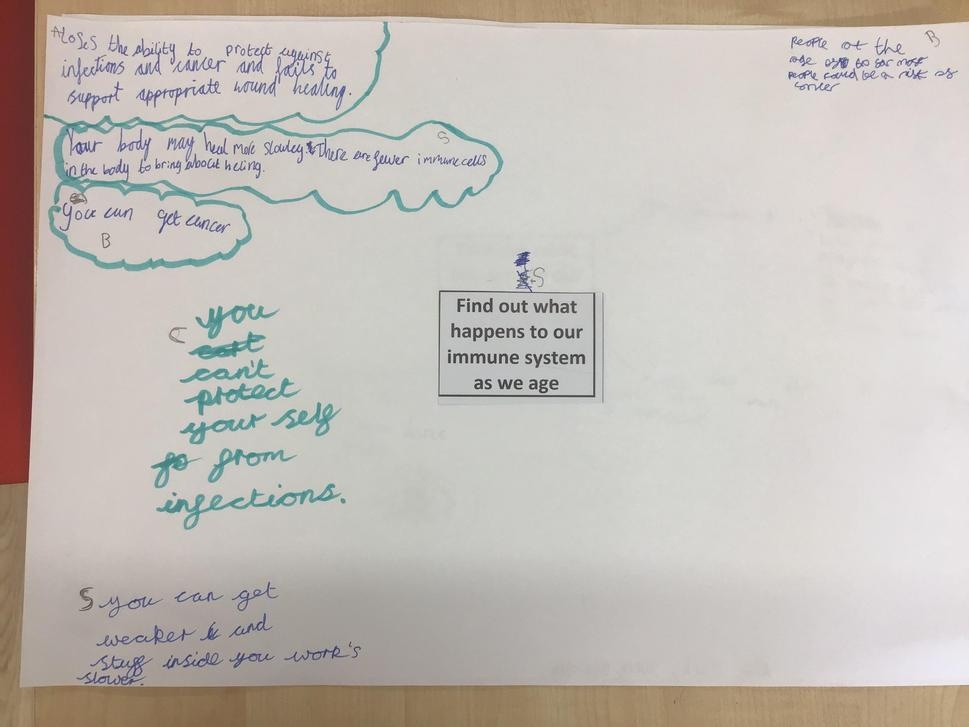 A Loses the ability to protect against
infections and cancer and fails to
support appropriate wound healing.
S
Your body may heal more slowley There are fewer immune cells
in the body to bring about heling.
You can get cancer
B
B
People at the
age to 80 most
People could be a risk of
S
Find out what
happens to our
immune system
as we age
C you
can't
protect
your self
from
infections.
S you can get
weaker and
stuff inside you work's
slower.